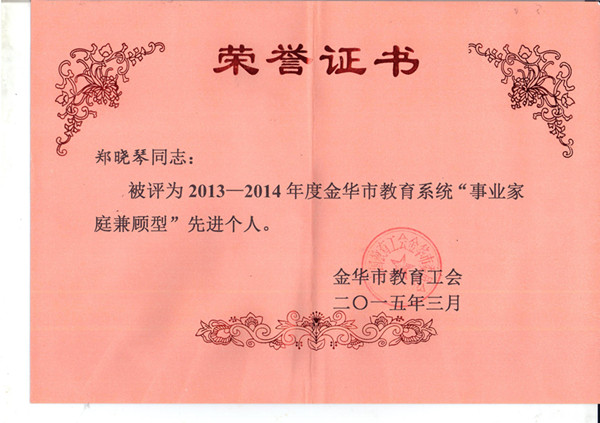 荣誉证书
郑晓琴同志：
被评为 2013—2014 年度金华市教育系统“事业家
庭兼顾型”先进个人。
金华市教育工会
二〇一五年三月